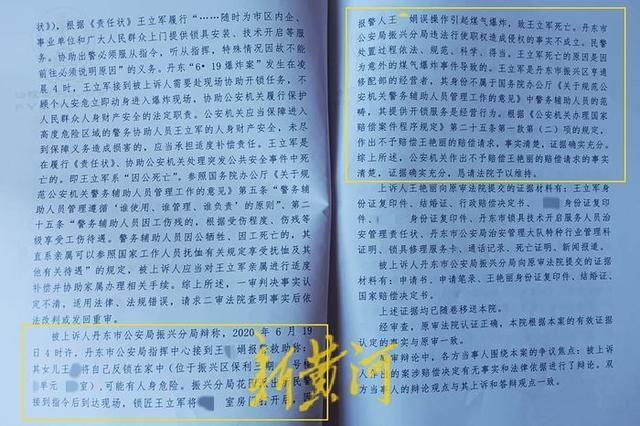 状》），根据《责任状》王立军履行“……随时为市区内企、
事业单位和广大人民群众上门提供锁具安装、技术开启等服
务。协助出警必须服从指令，听从指挥，特殊情况因故不能
前往必须说明原因”的义务。丹东“6·19爆炸案”发生在凌
晨4时，王立军接到被上诉人需要赴现场协助开锁任务，不
顾个人安危立即动身进入爆炸现场，协助公安机关履行保护
人民群众人身财产安全的法定职责。公安机关应当保障进入
高度危险区域的警务协助人员王立军的人身财产安全，未尽
到保障义务造成损害的，应当承担适度补偿责任。王立军是
在履行《责任状》、协助公安机关处理突发公共安全事件中死
亡的。即王立军系“因公死亡”。参照国务院办公厅《关于规
范公安机关警务辅助人员管理工作的意见》第五条“警务辅
助人员管理遵循‘谁使用、谁管理、谁负责’的原则”、第二
十五条“警务辅助人员因工伤残的，根据受伤程度、伤残等
级享受工伤待遇。警务辅助人员因公牺牲、因工死亡的，其
直系亲属可以参照国家工作人员抚恤有关规定享受抚恤及其
他有关待遇”的规定，被上诉人应当对王立军亲属进行适度
补偿并协助家属办理相关手续。综上所述，一审判决事实认
定不清，适用法律、法规错误，请求二审法院查明事实后依
法改判或发回重审。
被上诉人丹东市公安局振兴分局辩称，2020年6月19
日4时许，丹东市公安局指挥中心接到王 娟报警求助称：
其女儿王 将自己反锁在家中（位于振兴区保利三期
单元 室），可能有人身危险。振兴分局花园 出所民警
接到指令后到达现场，锁匠王立军将 室房门打开后，因
报警人王 娟误操作引起煤气爆炸，致王立军死亡。丹东市
公安局振兴分局违法行使职权造成侵权的事实不成立。民警
处置过程依法、规范、科学、得当。王立军死亡的原因是因
为意外的煤气爆炸事件导致的。王立军是丹东市振兴区亨通
修配部的经营者，其身份不属于国务院办公厅《关于规范公
安机关警务辅助人员管理工作的意见》中警务辅助人员的范
畴，其提供开锁服务是经营行为。根据《公安机关办理国家
赔偿案件程序规定》第二十五条第一款第（二）项的规定，
作出不予赔偿王艳丽的赔偿请求，事实清楚，证据确实充分。
综上所述，公安机关作出不予赔偿王艳丽的赔偿请求的事实
清楚，证据确实充分，恳请法院予以维持。
上诉人王艳丽向原审法院提交的证据材料有：王立军身
份证复印件、结婚证、行政赔偿决定书、 身份证复印件、
身份证复印件、丹东市锁具技术开启服务人员治
安管理责任状、丹东市公安局治安管理大队特种行业管理科
证明、锁具修理服务卡、通话记录、死亡证明、新闻报道。
被上诉人丹东市公安局振兴分局向原审法院提交的证据
材料有：申请书、申请笔录、王艳丽身份证复印件、结婚证、
国家赔偿决定书。
上述证据均已随卷移送本院。
经审查，原审法院认证正确，本院根据本案的有效证据
认定的事实与原审一致。
审辩论中，各方当事人围绕本案的争议焦点：被上诉
人作出的案涉赔偿决定有无事实和法律依据进行了辩论。双
方当事人的辩论观点与其上诉和答辩观点一致。
新黄河